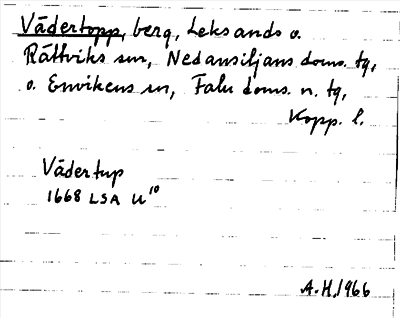 Vädertopp, berg, Leksands o.
Rättviks snr, Nedansiljans doms. tg,
o. Envikens sn, Falu doms. n. tg,
Kopp. l.
Vädertup
1668 LSA U¹⁰
A.H. 1966